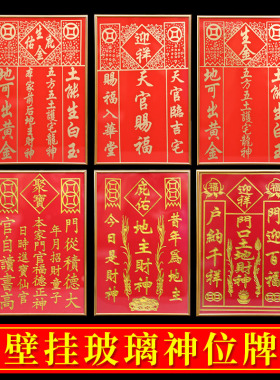 土能生白玉
五方五土護宅龍神
地可出黃金
迎祥
天官臨吉宅
天官賜福
賜福入華堂
生金
土能生白玉
五方五土護宅龍神
地可出黃金
聚寶
門從積德大
年月招財童子
本家門官福德正神
日時進寶仙官
官自讀書高
庇佑
昔年為地主
地主財神
今日是財神
福
迎祥
門迎百福
門口土地財神
戶納千祥
壁挂玻璃神位牌